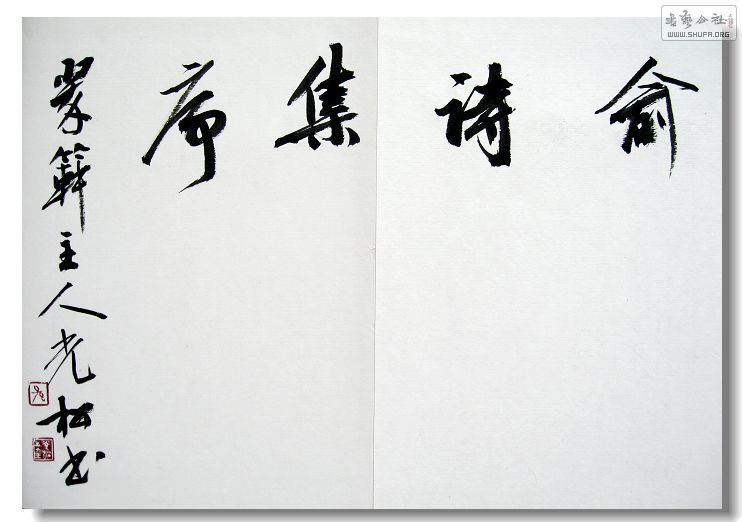 书艺公社
WWW.SHUFA.ORG
俞诗集序
主人光松书